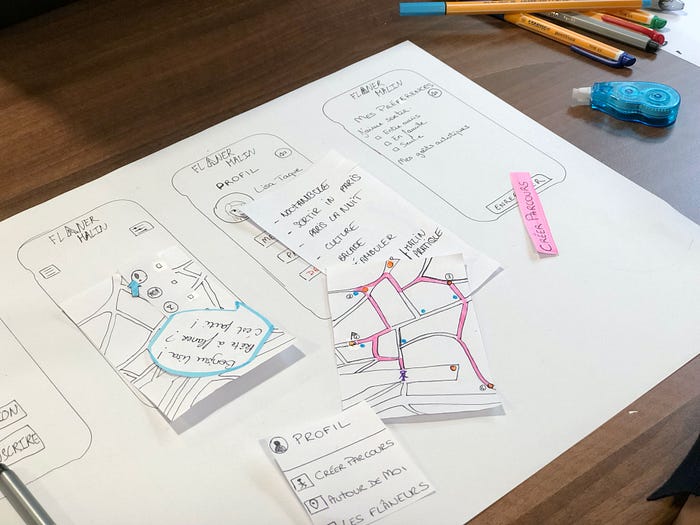 FLÂNER
MALIN
ON
SCRIRE
Bonjour Lisa !
Prête à flâner ?
C'est parti !
FLÂNER
MALIN
PROFIL
Lisa Taque
- NOCTAMBULE
- SORTIR IN PARIS
- PARIS LA NUIT
- CULTURE
BALADE
MALIN
PRATIQUE
FLÂNER
MALIN
MES PRÉFÉRENCES
Entre amis
En famille
Seule
Mes goûts artistiques
CRÉER PARCOURS
PROFIL
CRÉER PARCOURS
AUTOUR DE MOI
LES FLÂNEURS